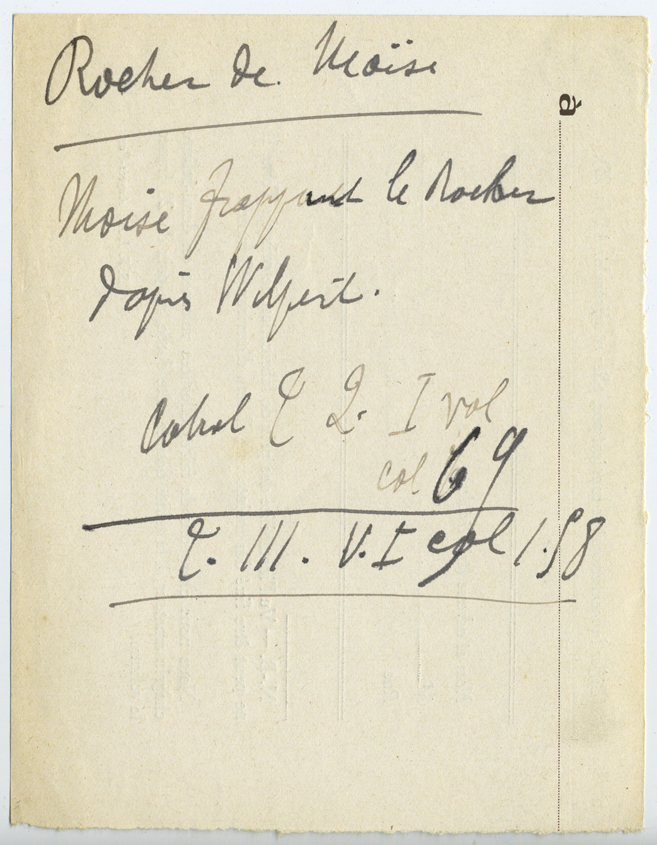 Rocher de Moïse
Moise frappant le Rocher
dapres Wilpert.
Cabrol T 2. I vol
col. 69
T. III. V. I col 1.58
à